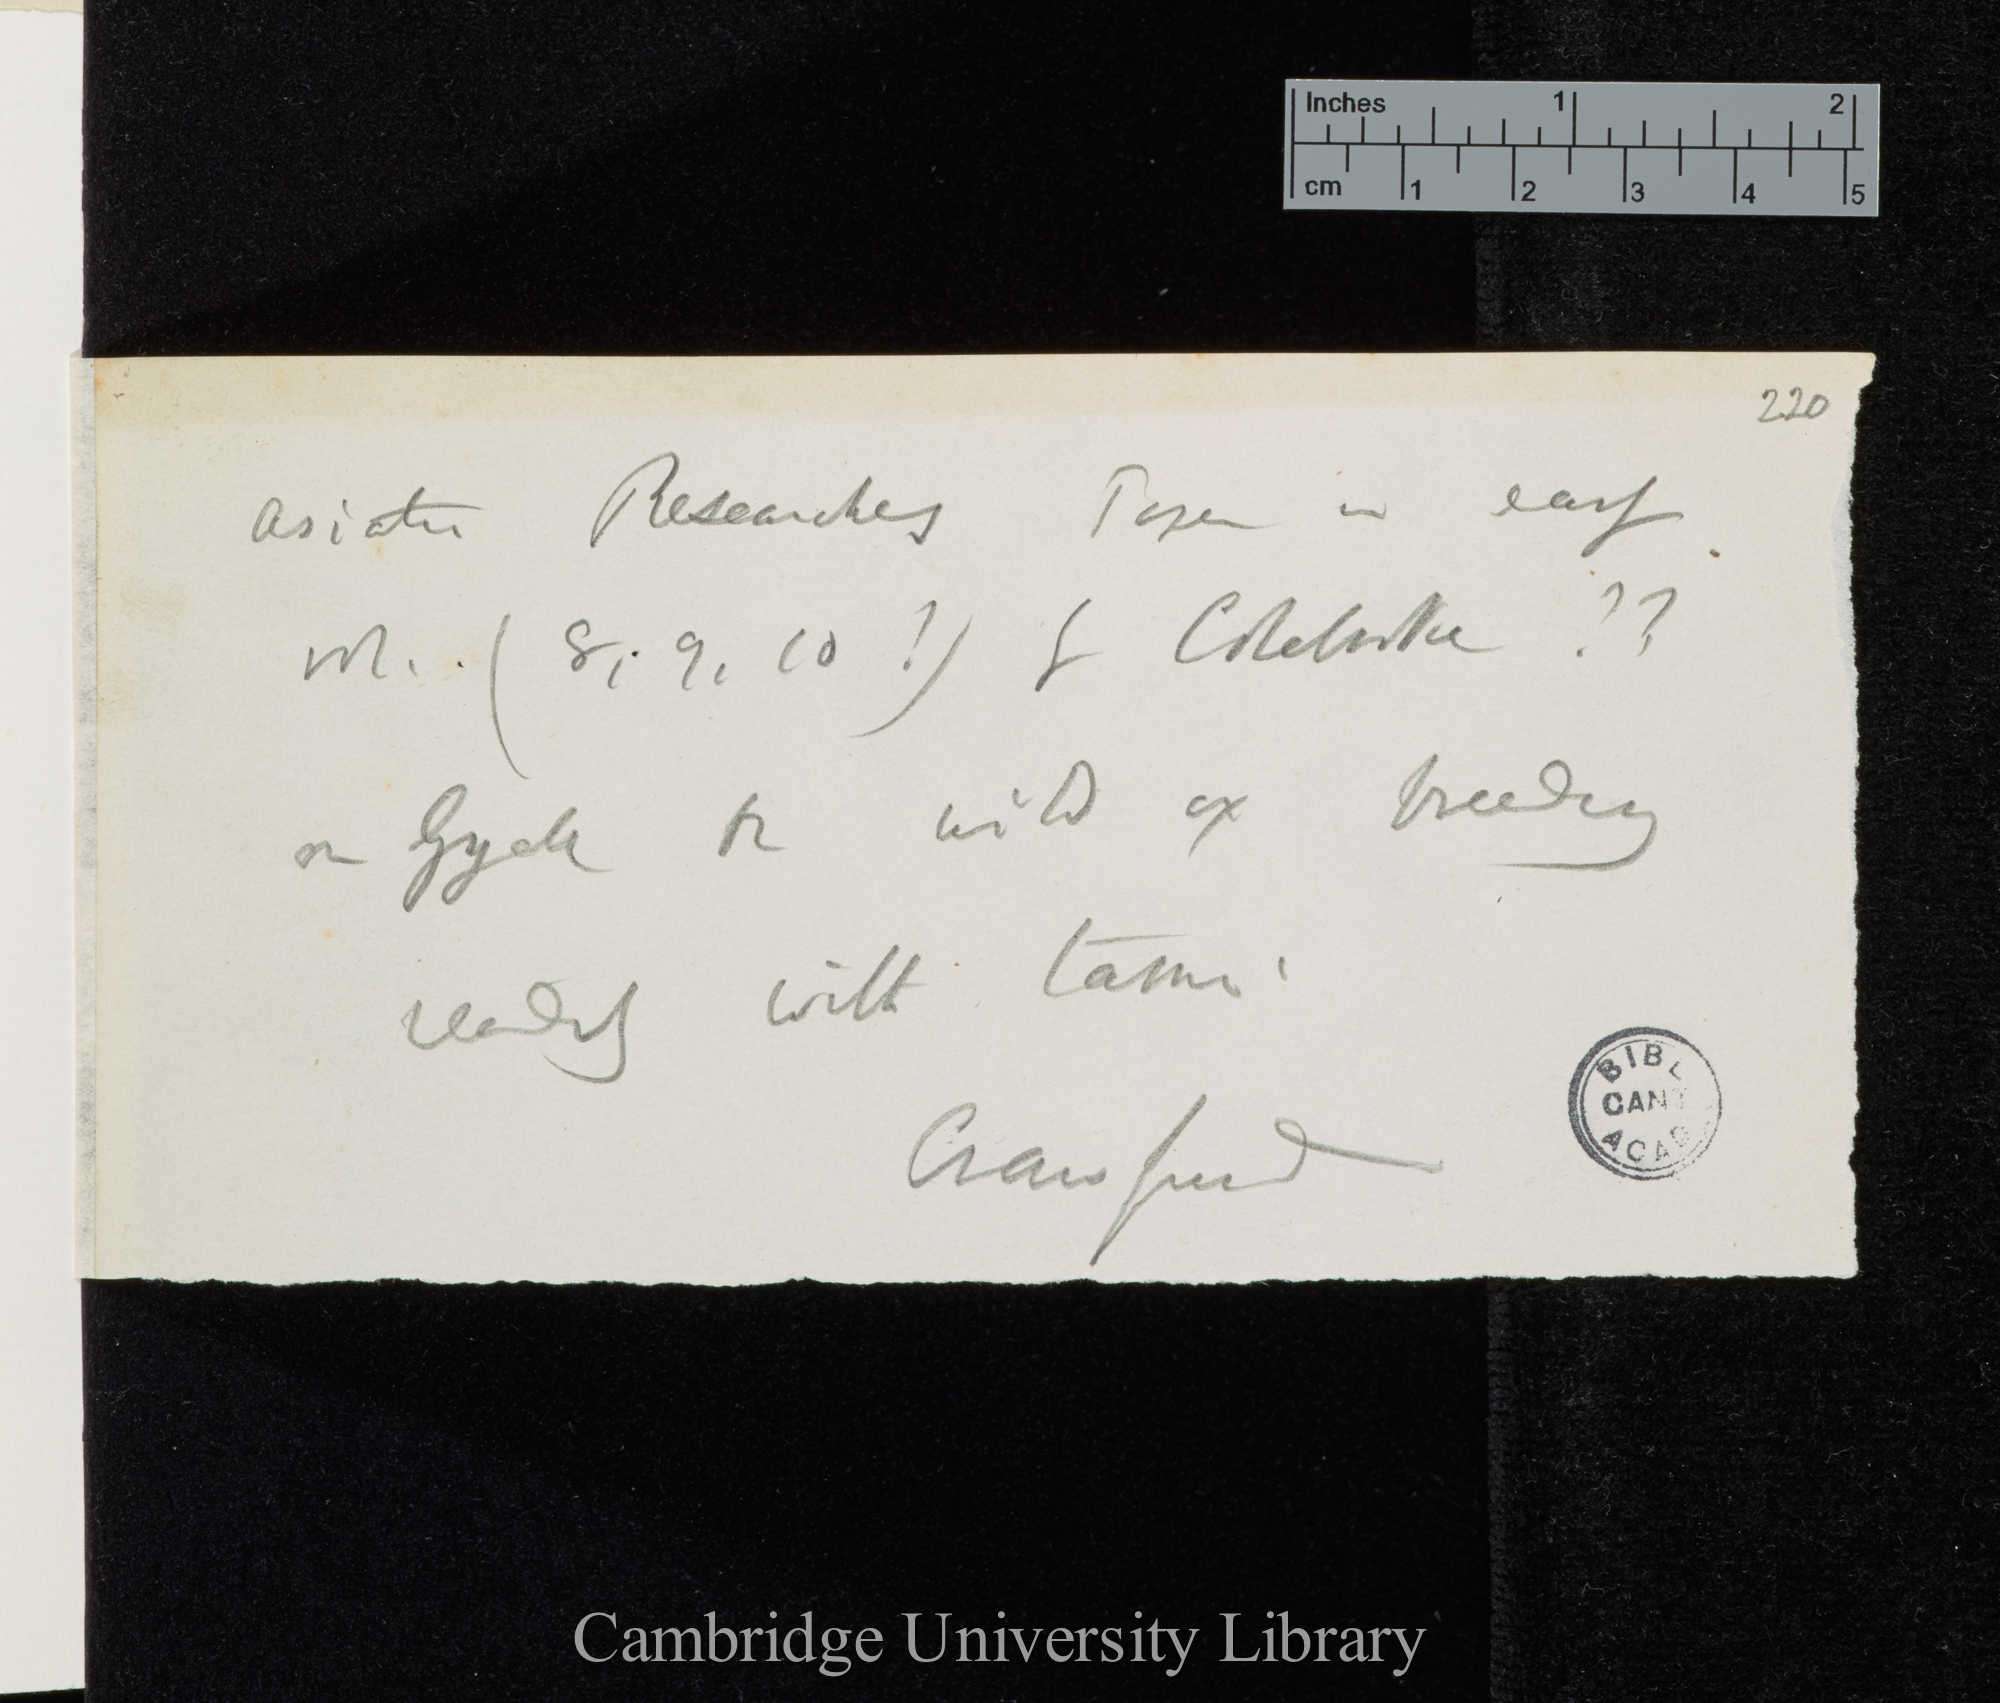 Inches 1 2
cm 1 2 3 4 5
220
Asiatic Researches Paper in early
vol. (8, 9, 10 ?) by Colebrooke ??
on Gyall or wild ox breeding
readily with tame.
Crawfurd
BIBL
CANT
ACAD
Cambridge University Library